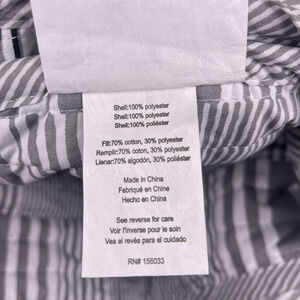 Shell:100% polyester
Shell:100% polyester
Shell:100% poliéster
Fill:70% cotton, 30% polyester
Remplir:70% coton, 30% polyester
Llenar:70% algodón, 30% poliéster
Made in China
Fabriqué en China
Hecho en China
See reverse for care
Voir l'inverse pour le soin
Vea el revés para el cuidado
RN# 156033